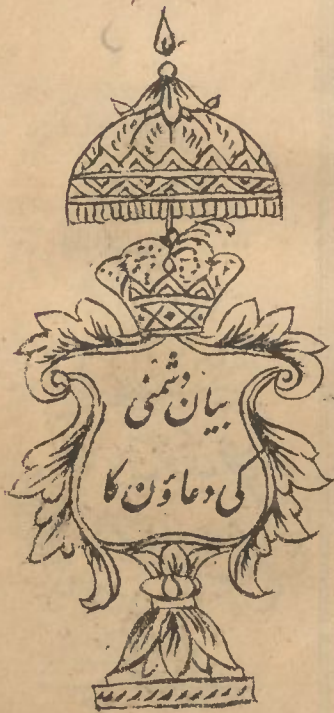 بیان دشمنی
کی دعاؤن کا